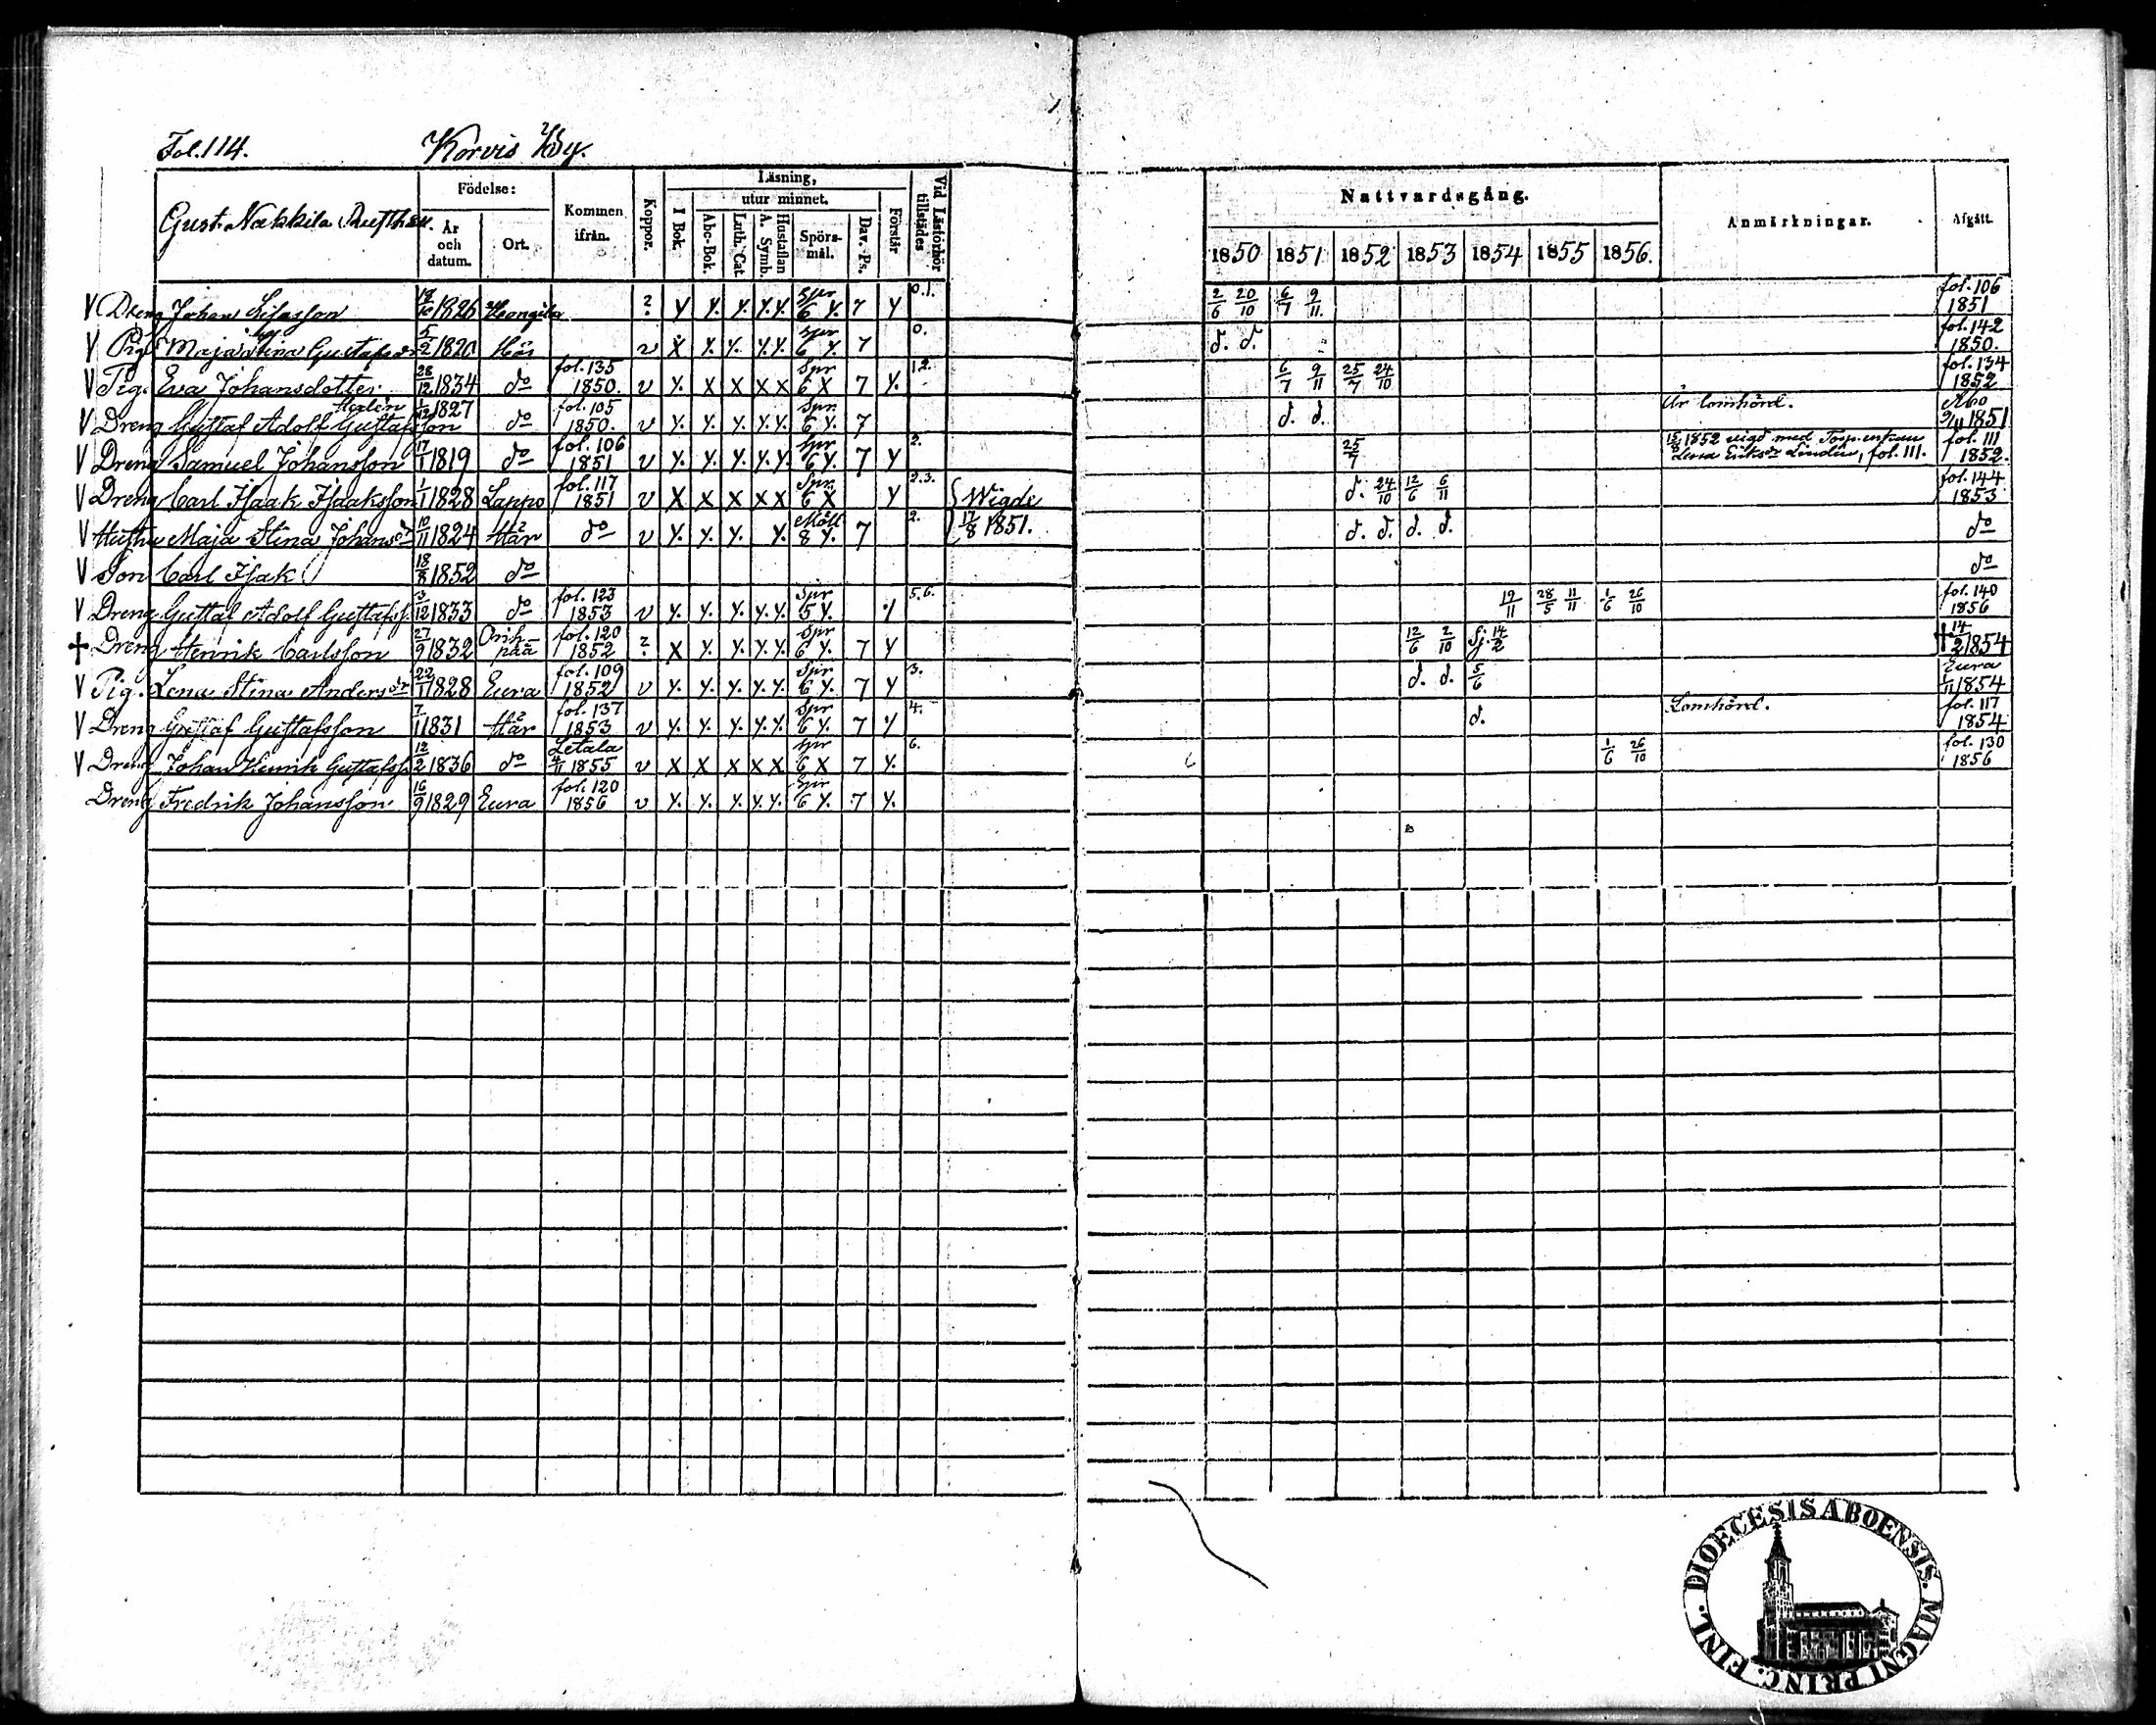 Fol. 114. Korvis By.
Gust. Nakkila Rusth.
Födelse: År och datum. Ort. Kommen ifrån. Koppor. Läsning, I Bok. utur minnet. Abc-Bok. Luth. Cat. A. Symb. Hustaflan Spörsmål. Dav. Ps. Förstår Vid Läsförhör tillstädes Nattvardsgång. 1850 1851 1852 1853 1854 1855 1856. Anmärkningar. Afgått.
V Dreng Johan 1826 ? y y. y. y. y. Spr 6 y. 7 y 0.1. 2/6 20/10 6/7 9/11 fol. 106 1851
V Pig. Maja Stina 5/2 1820 Här v X y. y. y. y. Spr 6 y. 7 0. d. d. fol. 142 1850.
V Pig. Eva Johansdotter 28/12 1834 do fol. 135 1850. v y. X X X X Spr 6 X 7 y. 1.2. 6/7 9/11 25/7 24/10 fol. 134 1852
V Dreng Gustaf Adolf Gustafsson 1827 do fol. 105 1850. v y. y. y. y. y. Spr. 6 y. 7 d. d. Är lomhörd. Åbo 9/11 1851
V Dreng Samuel Johansson 17/1 1819 do fol. 106 1851 v y. y. y. y. y. Spr 6 y. 7 y 2. 25/7 1852 vigd med Lena Eriksdr Lindén, fol. 111. fol. 111 1852.
V Dreng Carl Isaak Isaaksson 1/1 1828 Lappo fol. 117 1851 v X X X X X Spr. 6 X y 2.3. Wigde d. 24/10 12/6 6/11 fol. 144 1853
V Hustru Maja Stina Johansdr 10/11 1824 Här do v y. y. y. y. 8 y. 7 2. 17/8 1851. d. d. d. d. do
V Son Carl Isak 18/8 1852 do do
V Dreng Gustaf Adolf Gustafss. 3/12 1833 do fol. 123 1853 v y. y. y. y. y. Spr 5 y. y 5.6. 19/11 28/5 11/11 1/6 26/10 fol. 140 1856
† Dreng Henrik Carlsson 27/9 1832 Orihpää fol. 120 1852 ? X y. y. y. y. Spr 6 y. 7 y 12/6 2/10 Sj. 14/2 † 14/2 1854
V Pig. Lena Stina Andersdr 22/1 1828 Eura fol. 109 1852 v y. y. y. y. y. Spr 6 y. 7 y 3. d. d. 5/6 Eura 1/11 1854
V Dreng Gustaf Gustafsson 7/1 1831 Här fol. 137 1853 v y. y. y. y. y. Spr 6 y. 7 y 4. d. Lomhörd. fol. 117 1854
V Dreng Johan Henrik Gustafss. 12/2 1836 do Letala 4/11 1855 v X X X X X Spr 6 X 7 y. 6. 1/6 26/10 fol. 130 1856
Dreng Fredrik Johansson 16/9 1829 Eura fol. 120 1856 v y. y. y. y. y. Spr 6 y. 7 y.
DIOECESIS ABOENSIS. MAGNI PRINC. FINL.